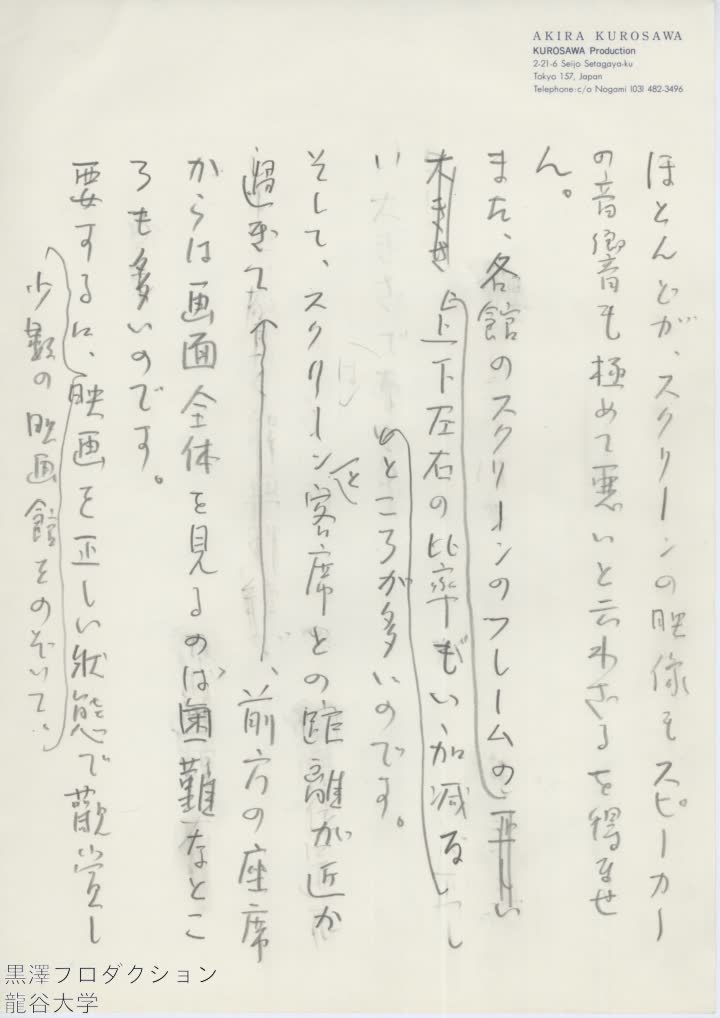 AKIRA KUROSAWA
KUROSAWA Production
2-21-6 Seijo Setagaya-ku
Tokyo 157, Japan
Telephone:c/o Nogami (03) 482-3496
ほとんどが、スクリーンの映像もスピーカー
の音響も極めて悪いと云わざるを得ませ
ん。
また、各館のスクリーンのフレームの正しい
大きさ上下左右の比率もいゝ加減なし
いところが多いのです。
そして、スクリーンと客席との距離が近か
過ぎて、前方の座席
からは画面全体を見るのは困難なとこ
ろも多いのです。
要するに、映画を正しい状態で観賞し
少数の映画館をのぞいて、
黒澤プロダクション
龍谷大学